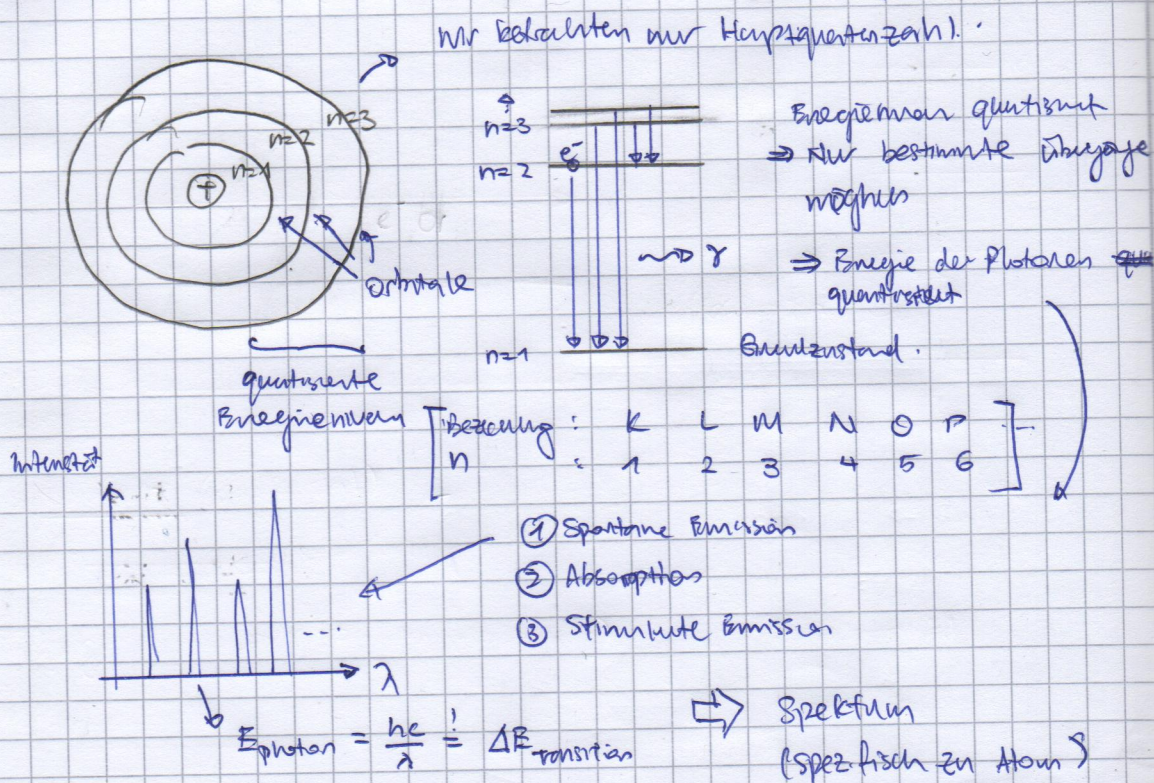 wir betrachten nur Hauptquantenzahl.
n=3
n=2
n=1
+
Orbitale
quantisierte
Energieniveau
n=3
n=2
e-
n=1
γ
Grundzustand.
Energieniveau quantisiert
⇒ Nur bestimmte Übergänge
möglich
⇒ Energie der Photonen
quantisiert
Bezeichnung : K L M N O P
n : 1 2 3 4 5 6
Intensität
λ
...
① Spontane Emission
② Absorption
③ Stimulierte Emission
E_photon = hc/λ =! ΔE_transition
⇒ Spektrum
(spezifisch zu Atom)